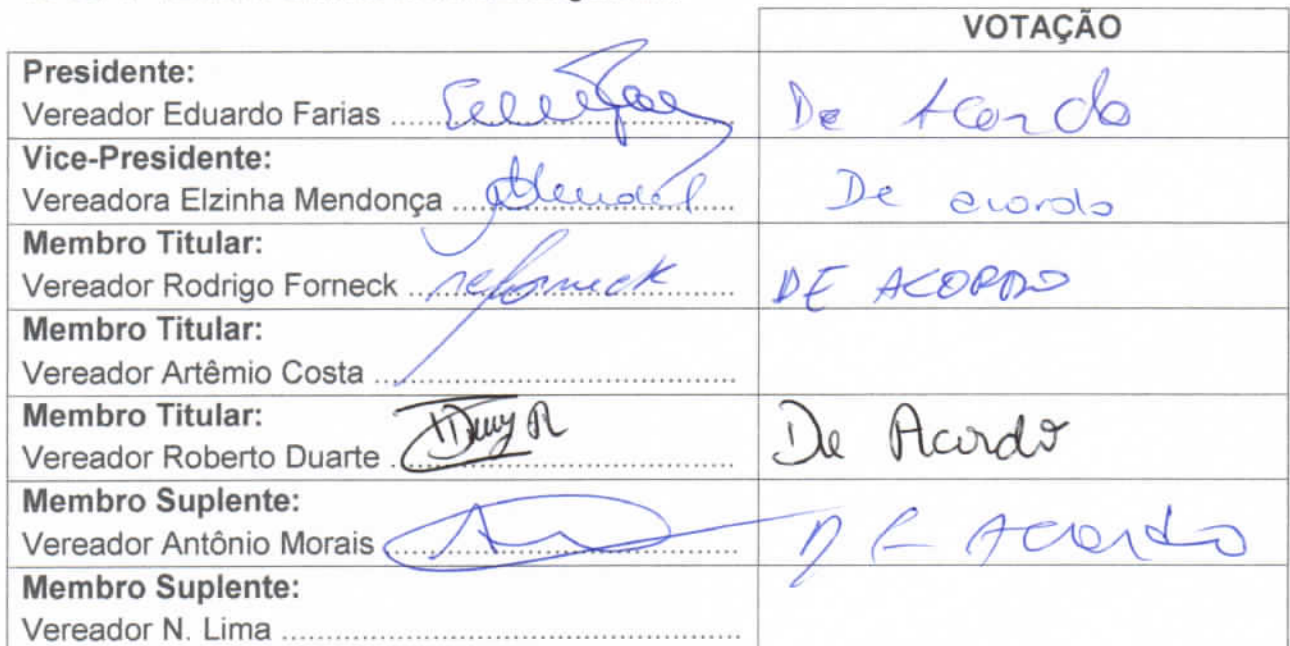 VOTAÇÃO
Presidente:
Vereador Eduardo Farias ........................................ De Acordo
Vice-Presidente:
Vereadora Elzinha Mendonça ........................................ De acordo
Membro Titular:
Vereador Rodrigo Forneck ........................................ DE ACORDO
Membro Titular:
Vereador Artêmio Costa ........................................
Membro Titular:
Vereador Roberto Duarte ........................................ De Acordo
Membro Suplente:
Vereador Antônio Morais ........................................ DE Acordo
Membro Suplente:
Vereador N. Lima ........................................